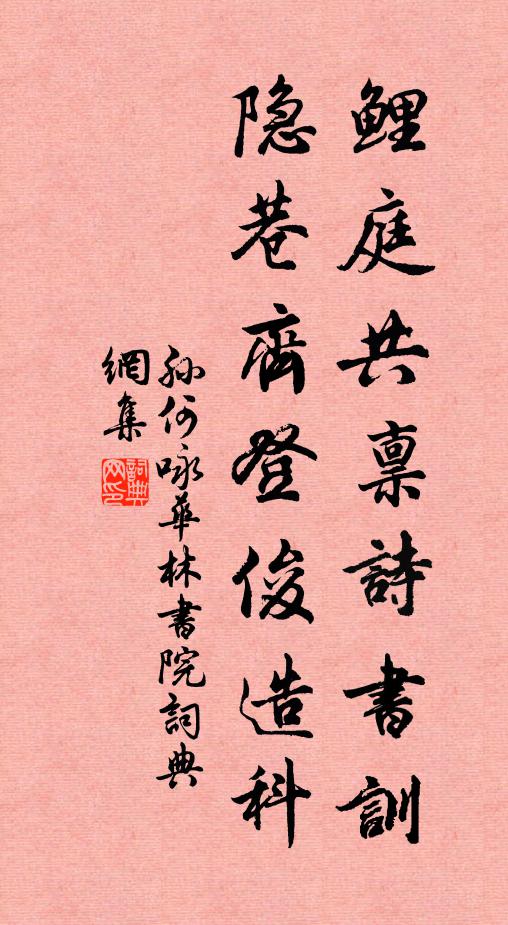 鲤庭共禀詩書訓
隐巷齊登俊造科
孙何咏華林書院詞典
網集
詞典
网印